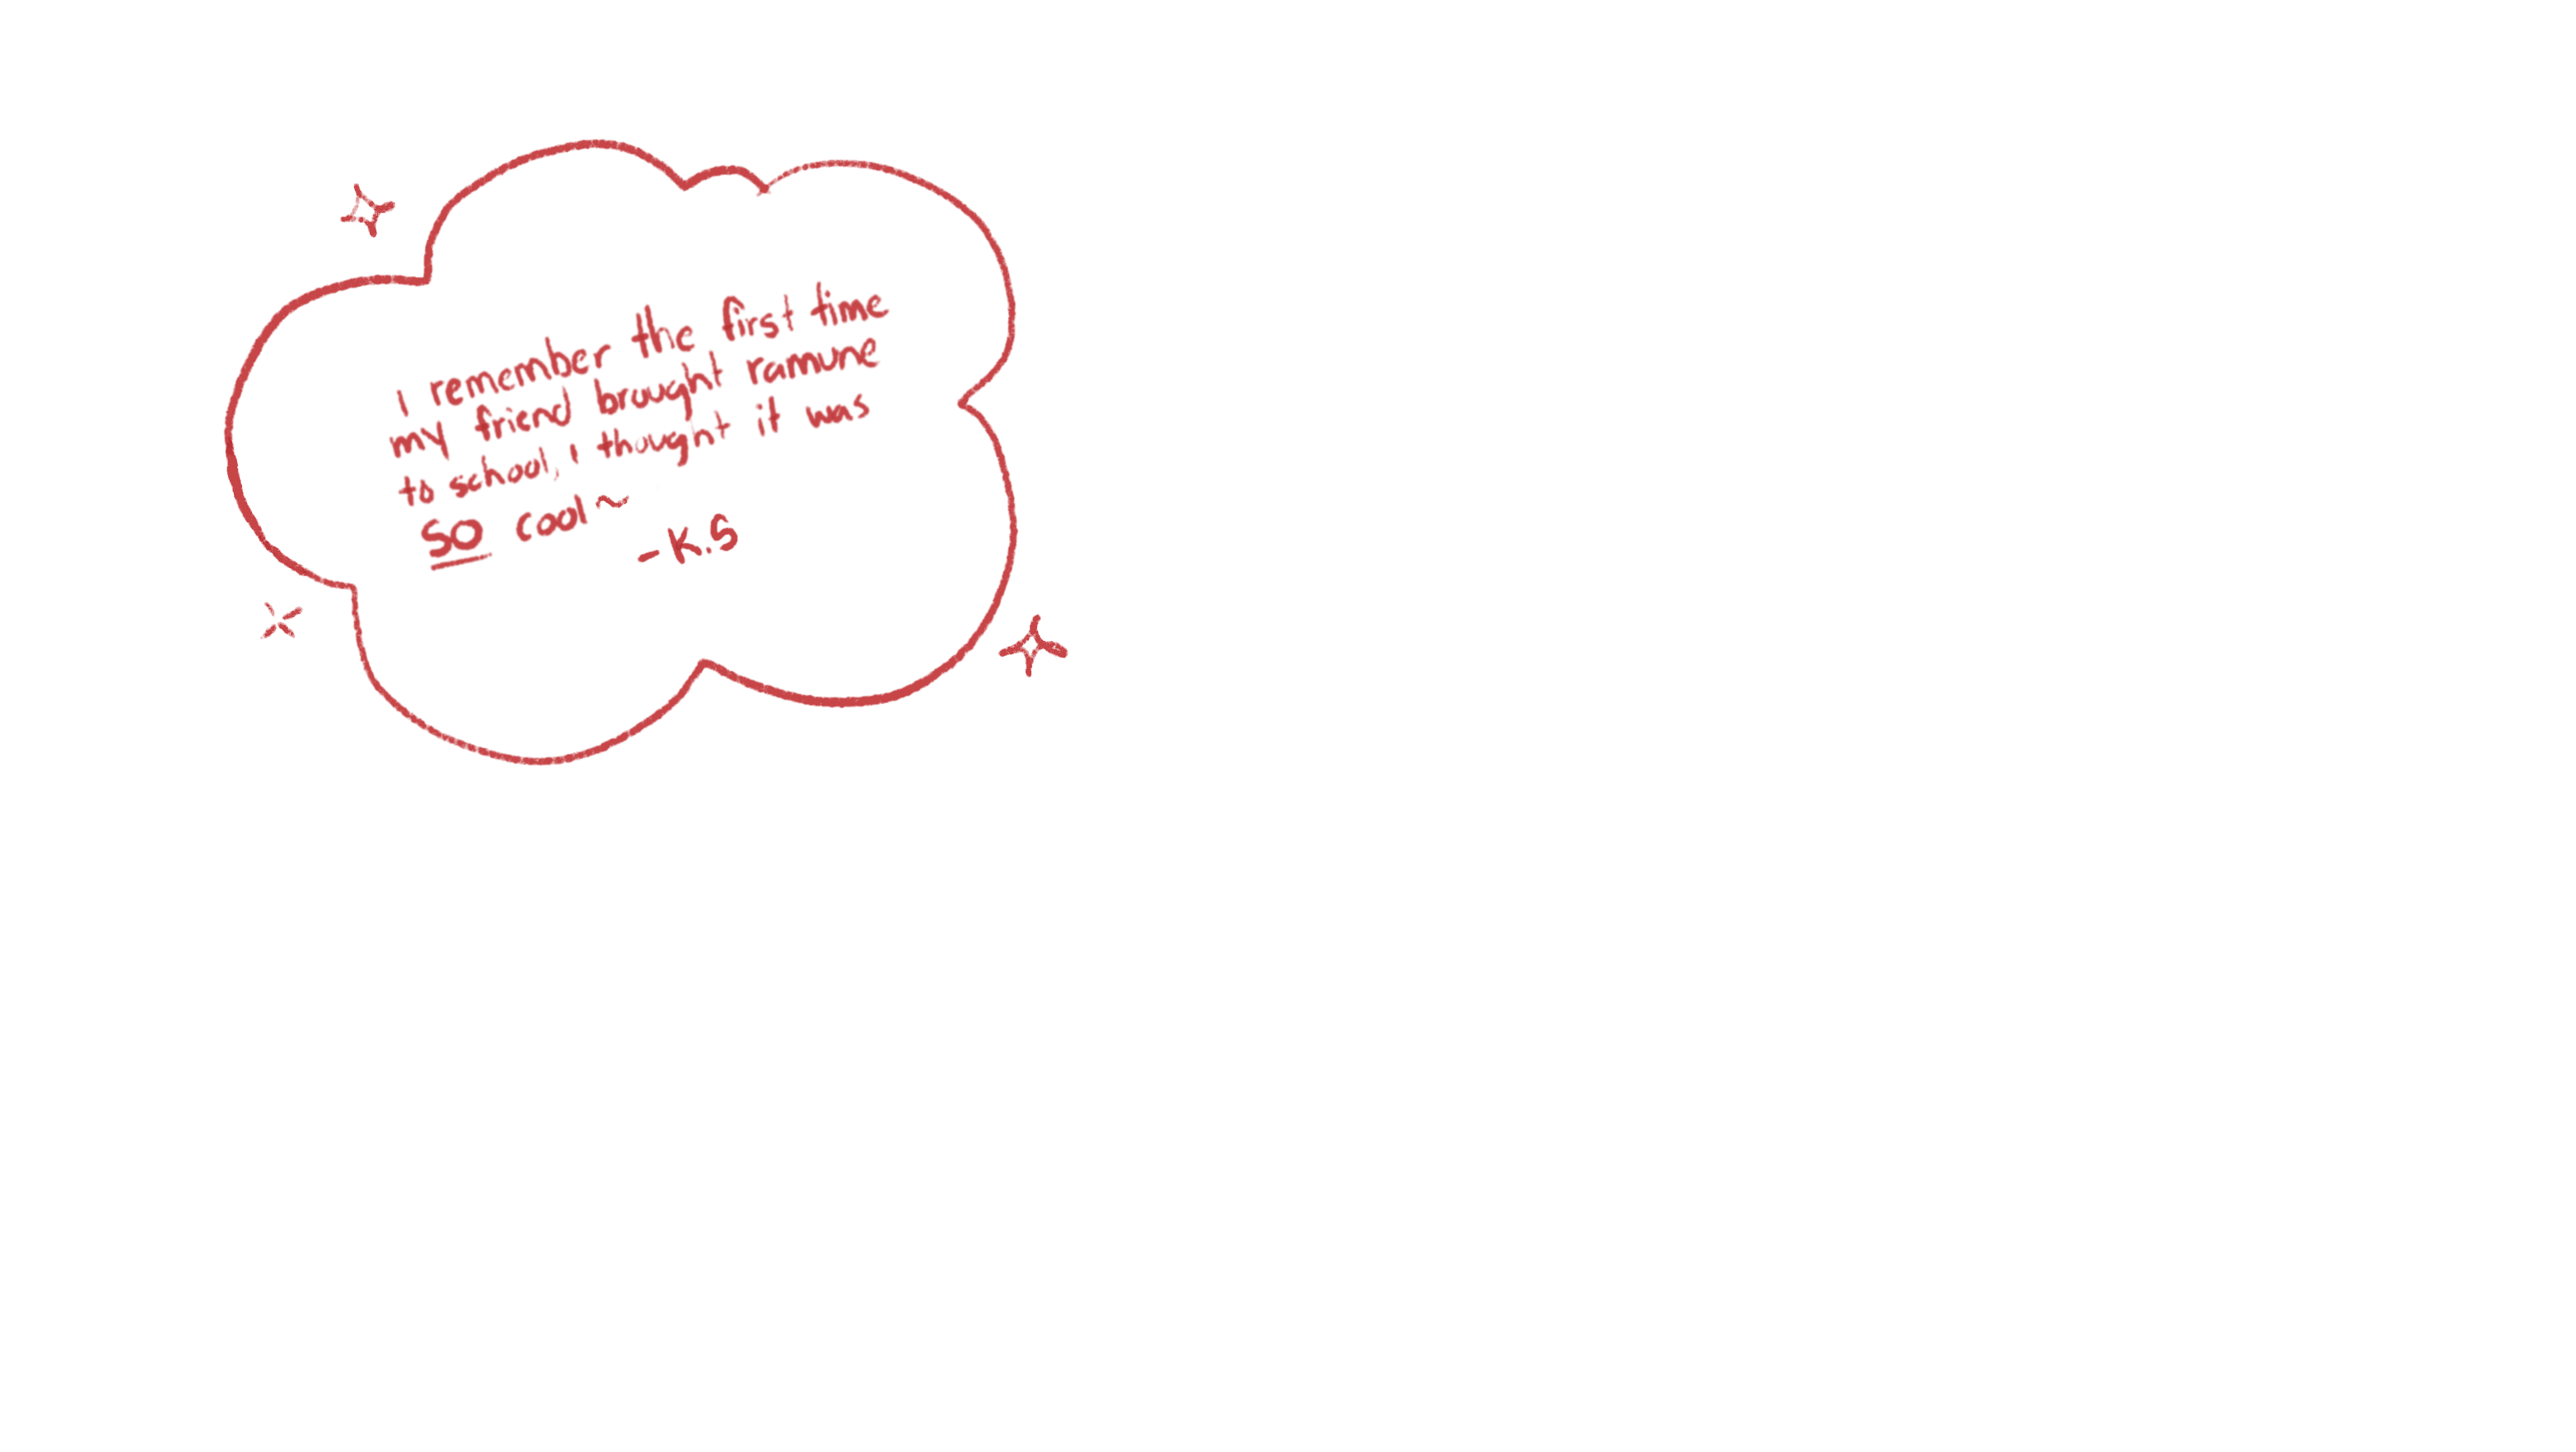 I remember the first time
my friend brought ramune
to school, I thought it was
SO cool ~
- K.S